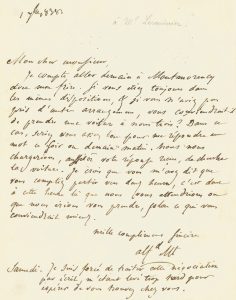 à Mr
Mon cher monsieur,
Je compte aller demain à Montmorency
avec mon frère. Si vous êtes toujours dans
les mêmes dispositions, et si vous n'avez pas
pris d'autre arrangement, vous conviendrait-il
de prendre une voiture à nous trois? Dans ce
cas, seriez vous assez bon pour me répondre un
mot ce soir ou demain matin. Nous nous
chargerions, aussitôt votre réponse reçue, de chercher
la voiture. Je crois que vous m'avez dit que
vous comptiez partir vers deux heures, c'est donc
à cette heure là que nous vous attendrions ou
que nous irions vous prendre, selon ce qui vous
conviendrait mieux.
mille compliments
Alfd Mt
Samedi. Je suis forcé de traiter cette négociation
par écrit, étant levé trop tard pour
espérer de vous trouver chez vous.